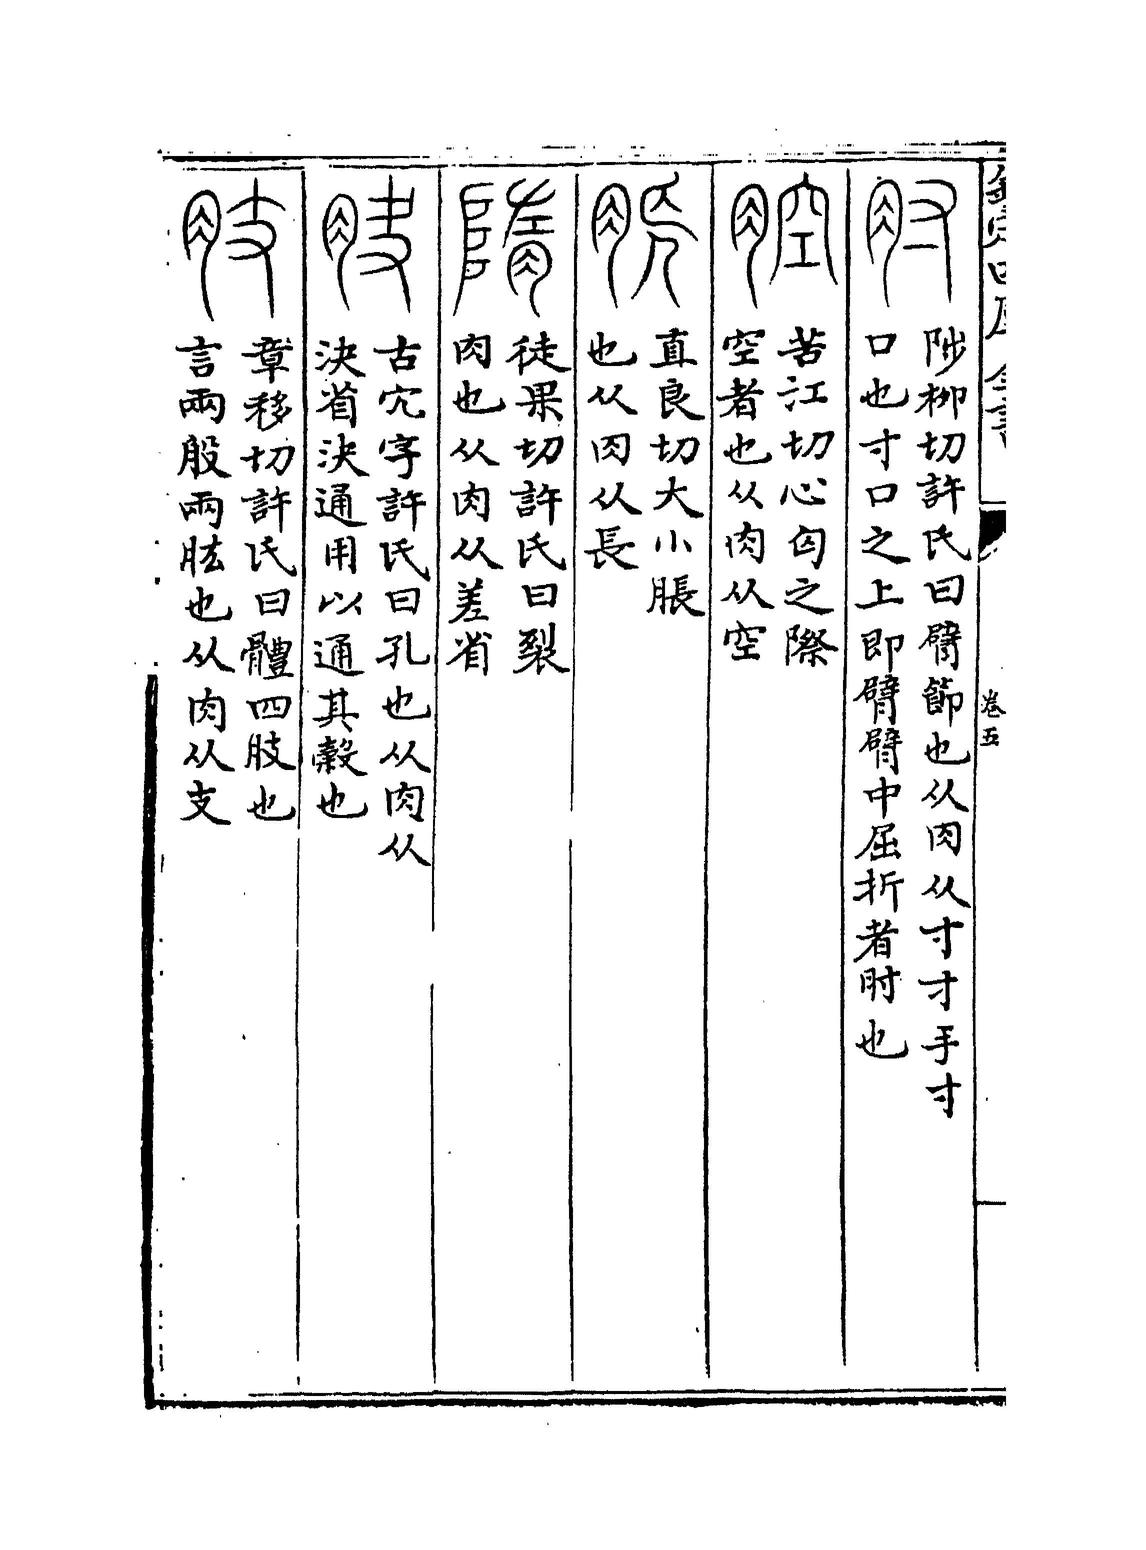 欽定四庫全書
卷五
肘
陟柳切許氏曰臂節也从肉从寸才手寸
口也寸口之上即臂臂中屈折者肘也
腔
苦江切心匈之際
空者也从肉从空
脹
直良切大小脹
也从肉从長
隋
徒果切許氏曰裂
肉也从肉从差省
肤
古穴字許氏曰孔也从肉从
決省決通用以通其穀也
肢
章移切許氏曰體四肢也
言兩股兩肱也从肉从支